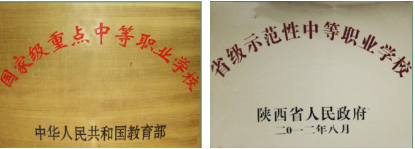 国家级重点中等职业学校
中华人民共和国教育部
省级示范性中等职业学校
陕西省人民政府
二〇一二年八月